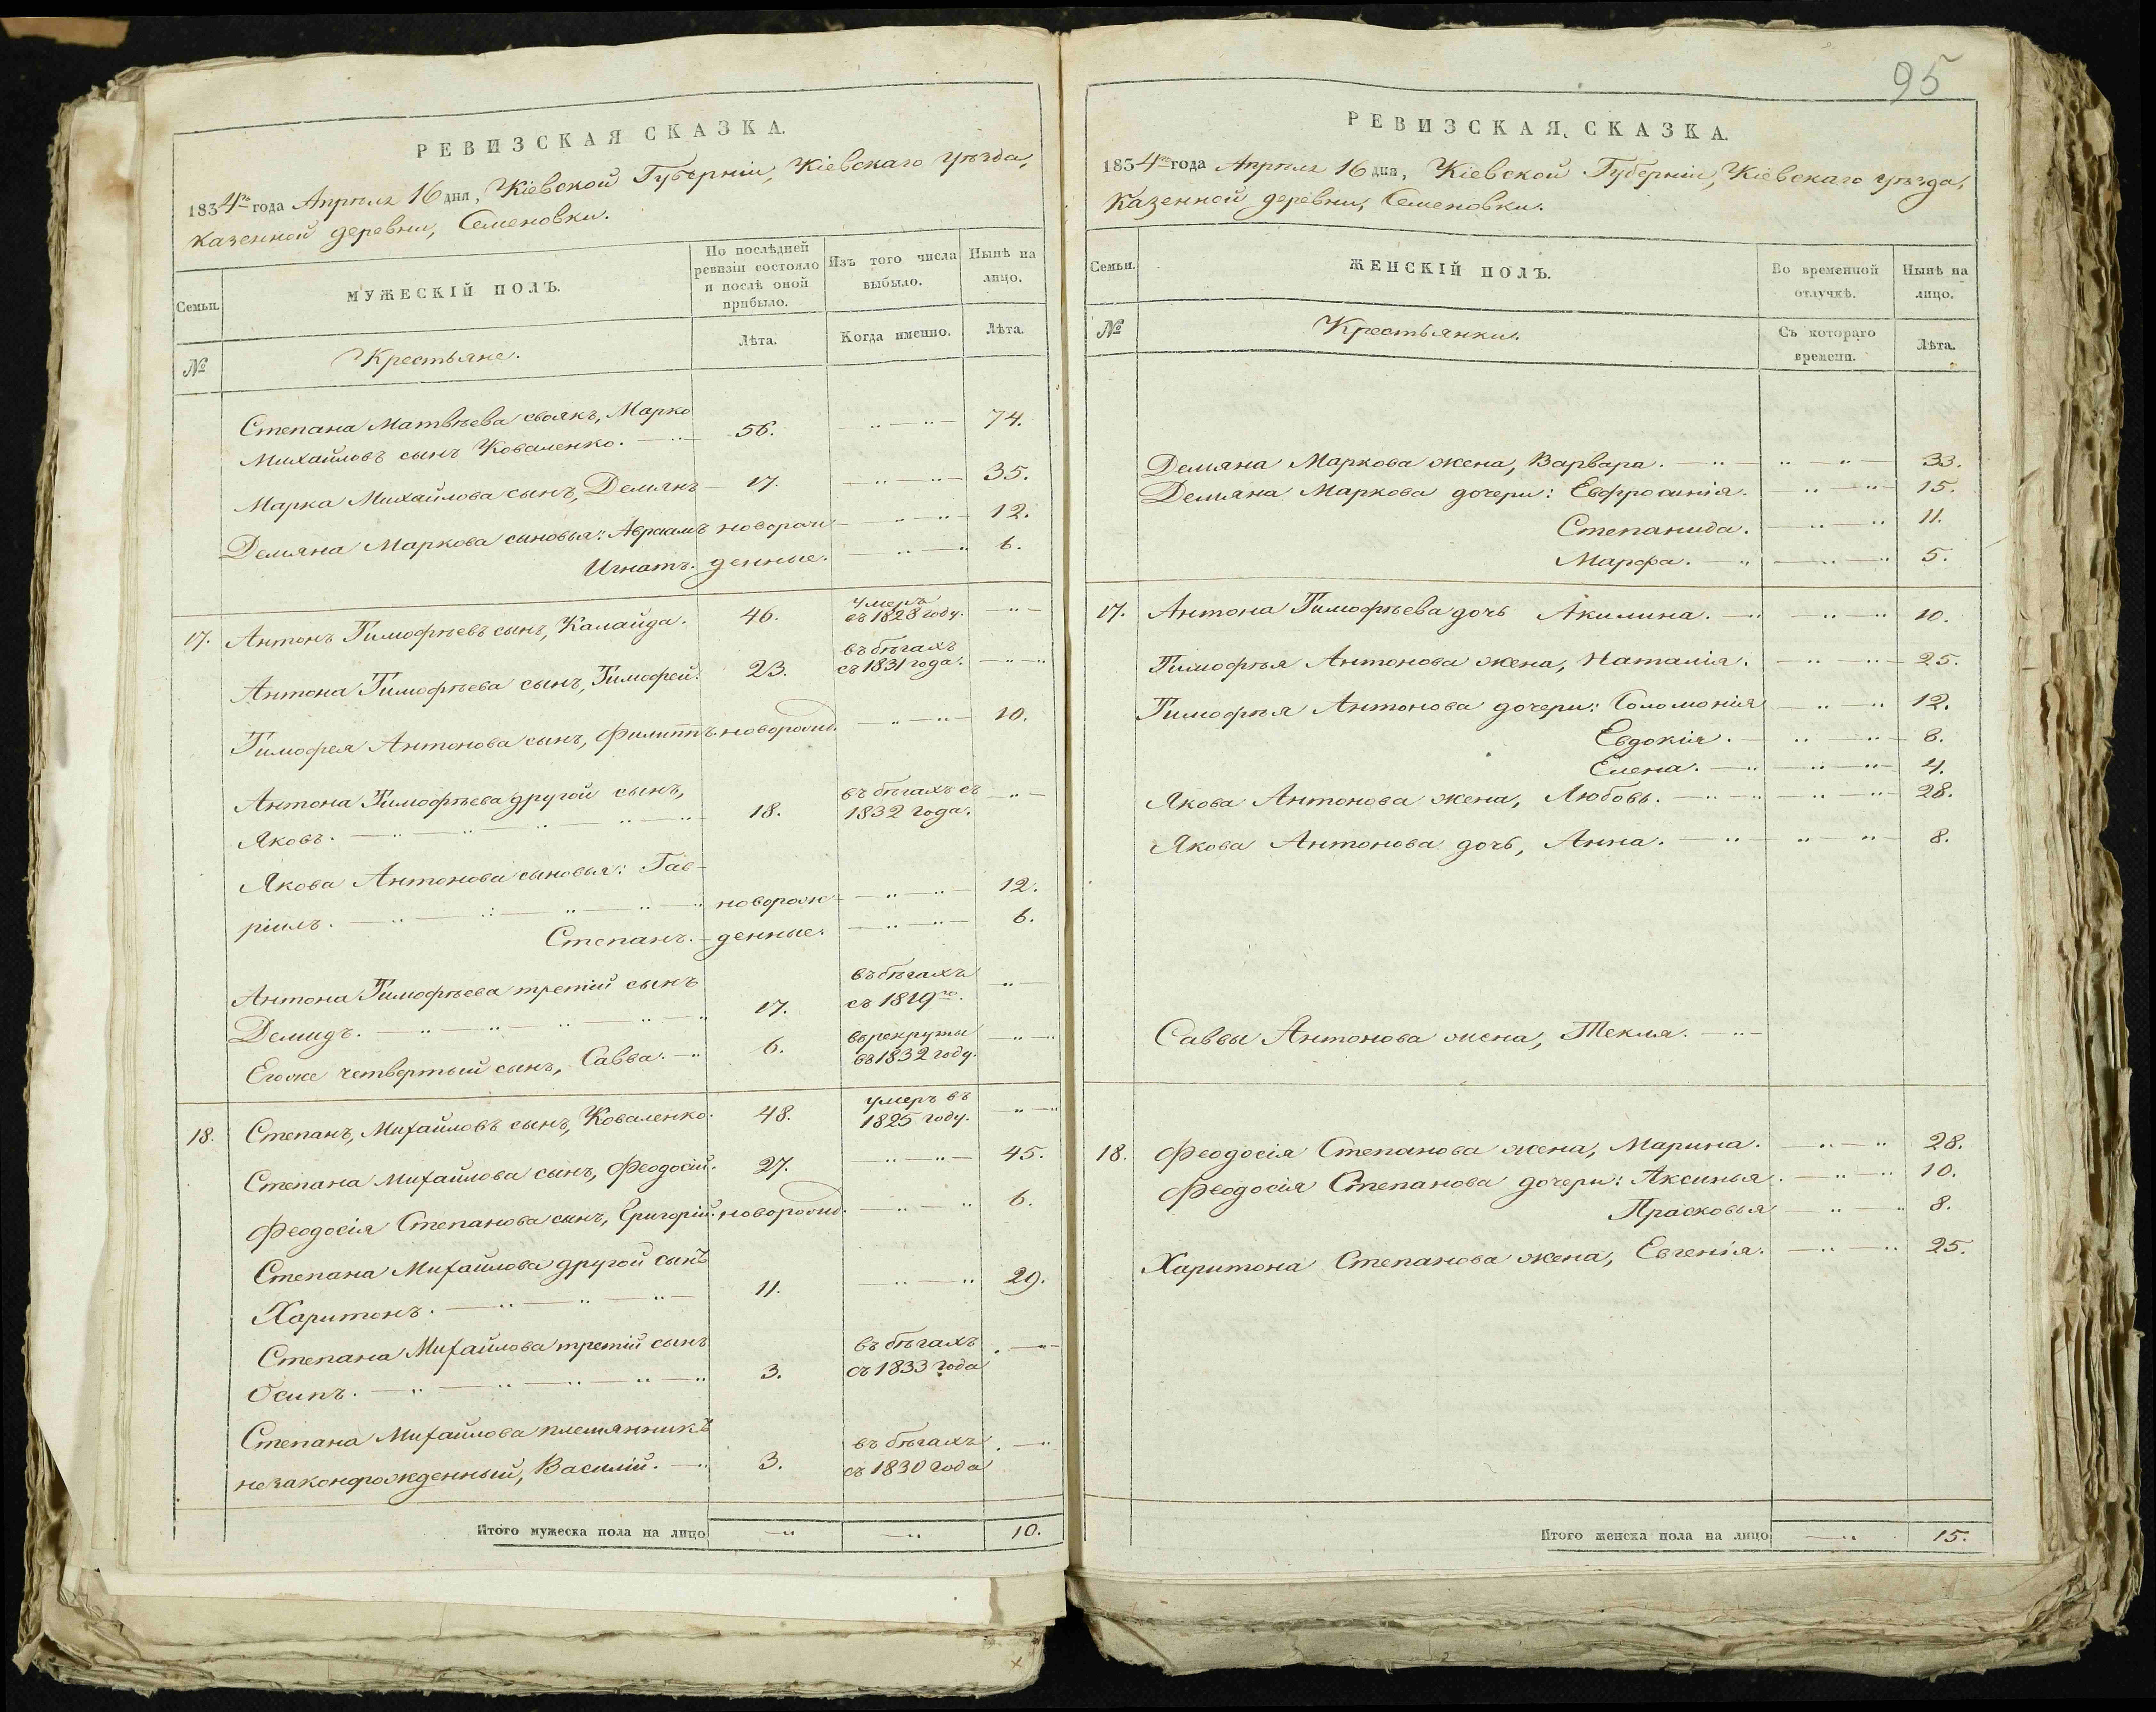 РЕВИЗСКАЯ СКАЗКА.
1834го года Апрѣля 16 дня, Кіевской Губерніи, Кіевскаго уѣзда,
казенной деревни, Семеновки.
Семьи.
МУЖЕСКІЙ ПОЛЪ.
По послѣдней
ревизіи состояло
и послѣ оной
прибыло.
Изъ того числа
выбыло.
Нынѣ на
лицо.
№
Крестьяне.
Лѣта.
Когда именно.
Лѣта.
Степана Матвѣева своякъ, Марко
Михайловъ сынъ Коваленко. 56. 74.
Марка Михайлова сынъ, Демьянъ 17. 35.
Демяна Маркова сыновья: Авраамъ новорож- 12.
Игнатъ. денные. 6.
17. Антонъ Тимофѣевъ сынъ, Калайда. 46. умеръ
въ 1828 году.
Антона Тимофѣева сынъ, Тимофей. 23. въ бѣгахъ
съ 1831 года.
Тимофея Антонова сынъ, Филиппъ. новорожд. 10.
Антона Тимофѣева другой сынъ,
Яковъ. 18. въ бѣгахъ съ
1832 года.
Якова Антонова сыновья: Гав-
ріилъ. новорож- 12.
Степанъ. денные. 6.
Антона Тимофѣева третій сынъ
Демидъ. 17. въ бѣгахъ
съ 1819го.
Егоже четвертый сынъ, Савва. 6. въ рекруты
въ 1832 году.
18. Степанъ, Михайловъ сынъ, Коваленко. 48. умеръ въ
1825 году.
Степана Михайлова сынъ, Феодосій. 27. 45.
Феодосія Степанова сынъ, Григорій. новорожд. 6.
Степана Михайлова другой сынъ
Харитонъ. 11. 29.
Степана Михайлова третій сынъ
Осипъ. 3. въ бѣгахъ
съ 1833 года
Степана Михайлова племянникъ
незаконфрожденный, Василій. 3. въ бѣгахъ
съ 1830 года
Итого мужеска пола на лицо 10.
95
РЕВИЗСКАЯ СКАЗКА.
1834го года Апрѣля 16 дня, Кіевской Губерніи, Кіевскаго уѣзда,
Казенной деревни, Семеновки.
Семьи.
ЖЕНСКІЙ ПОЛЪ.
Во временной
отлучкѣ.
Нынѣ на
лицо.
№
Крестьянки.
Съ котораго
времени.
Лѣта.
Демяна Маркова жена, Варвара. 33.
Демяна Маркова дочери: Евфросинія. 15.
Степанида. 11.
Марфа. 5.
17. Антона Тимофѣева дочь Акилина. 10.
Тимофѣя Антонова жена, Наталія. 25.
Тимофѣя Антонова дочери: Соломонія 12.
Евдокія. 8.
Елена. 4.
Якова Антонова жена, Любовь. 28.
Якова Антонова дочь, Анна. 8.
Саввы Антонова жена, Текля.
18. Феодосія Степанова жена, Марина. 28.
Феодосія Степанова дочери: Аксинья. 10.
Прасковья 8.
Харитона Степанова жена, Евгенія. 25.
Итого женска пола на лицо 15.